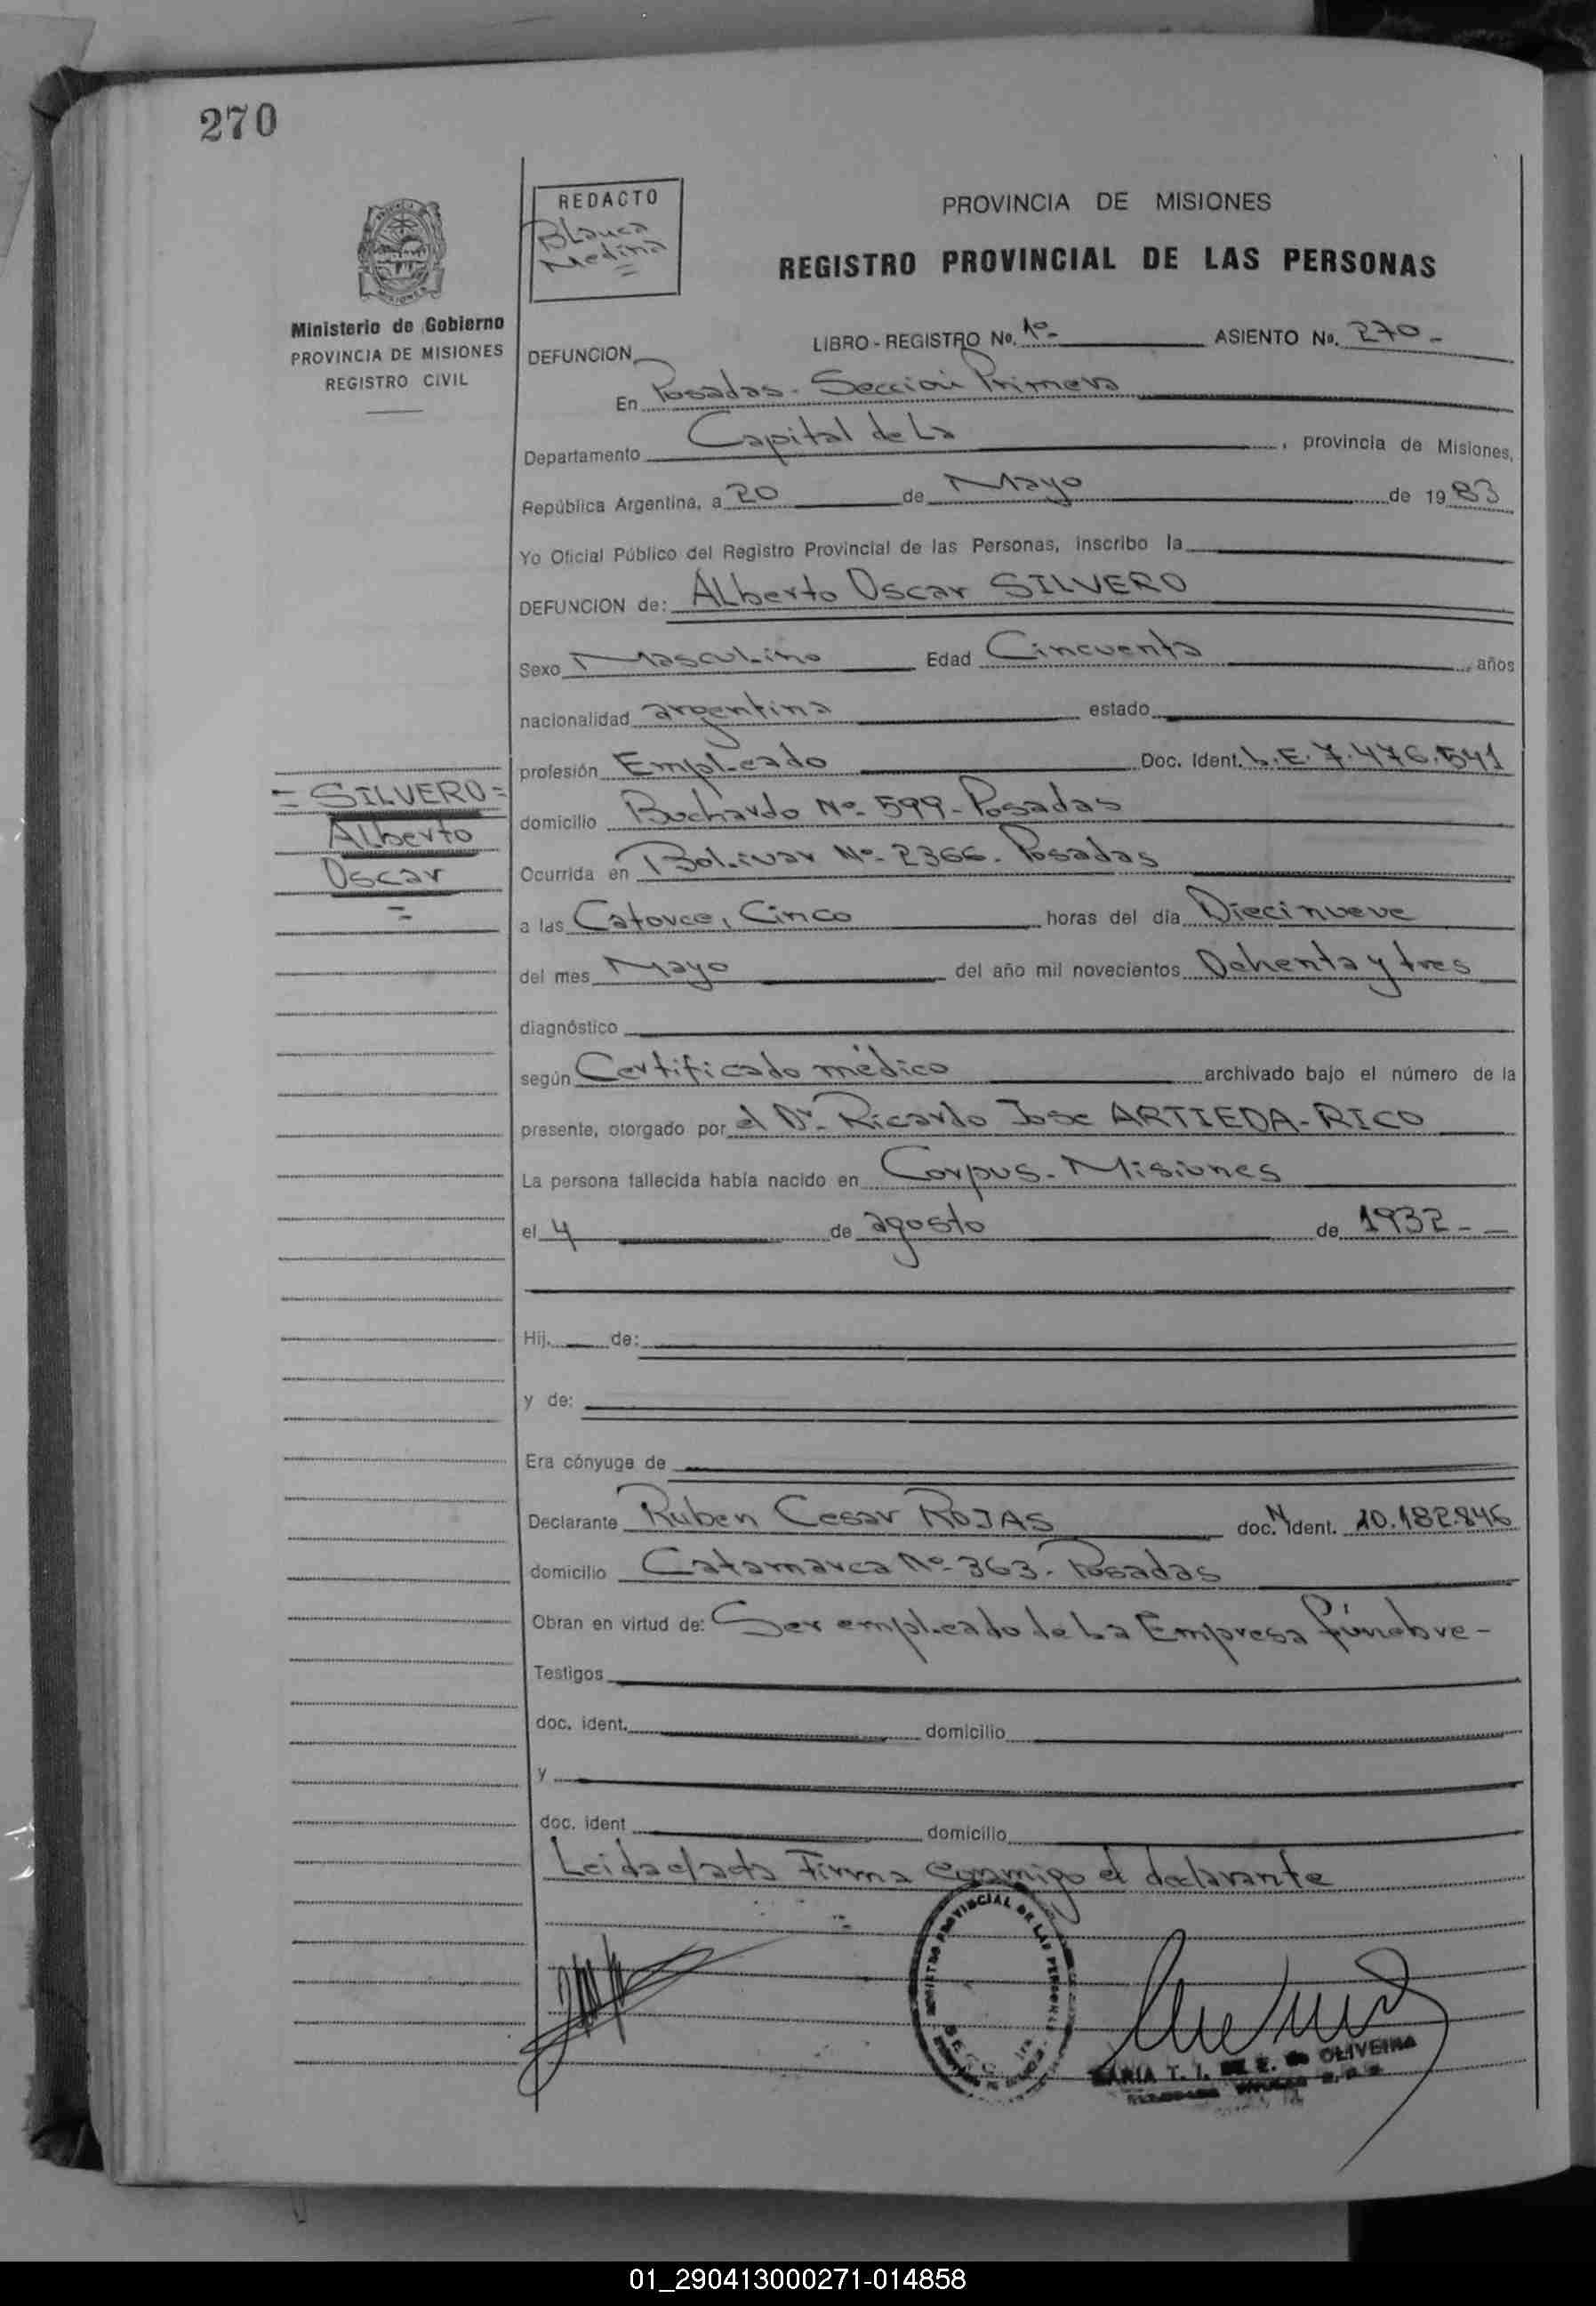 270
REDACTO
Blanca
Medina
PROVINCIA DE MISIONES
REGISTRO PROVINCIAL DE LAS PERSONAS
Ministerio de Gobierno
PROVINCIA DE MISIONES
REGISTRO CIVIL
LIBRO - REGISTRO No. 1º- ASIENTO No. 270-
DEFUNCION
En Posadas - Sección Primera
Departamento Capital de La , provincia de Misiones,
República Argentina, a 20 de Mayo de 1983
Yo Oficial Público del Registro Provincial de las Personas, inscribo la
DEFUNCION de: ALberto Oscar SILVERO
Sexo Masculino Edad Cincuenta años
nacionalidad argentina estado
profesión Empleado Doc. Ident. L.E. 7.476.541
= SILVERO =
ALberto
Oscar
=
domicilio Buchardo Nº- 599- Posadas
Ocurrida en Bolivar Nº- 2366- Posadas
a las Catorce, Cinco horas del día Diecinueve
del mes Mayo del año mil novecientos Ochenta y tres
diagnóstico
según Certificado médico archivado bajo el número de la
presente, otorgado por el Dr. Ricardo Jose ARTIEDA-RICO
La persona fallecida había nacido en Corpus - Misiones
el 4 de agosto de 1932-
Hij. de:
y de:
Era cónyuge de
Declarante Ruben Cesar ROJAS doc. N ident. 10.182.846
domicilio Catamarca Nº- 363- Posadas
Obran en virtud de: Ser empleado de La Empresa fúnebre-
Testigos
doc. ident. domicilio
y
doc. ident domicilio
Leida el acta Firma conmigo el declarante
REGISTRO PROVINCIAL DE LAS PERSONAS
MARIA T. I. DE Z. de OLIVEIRA
01_290413000271-014858